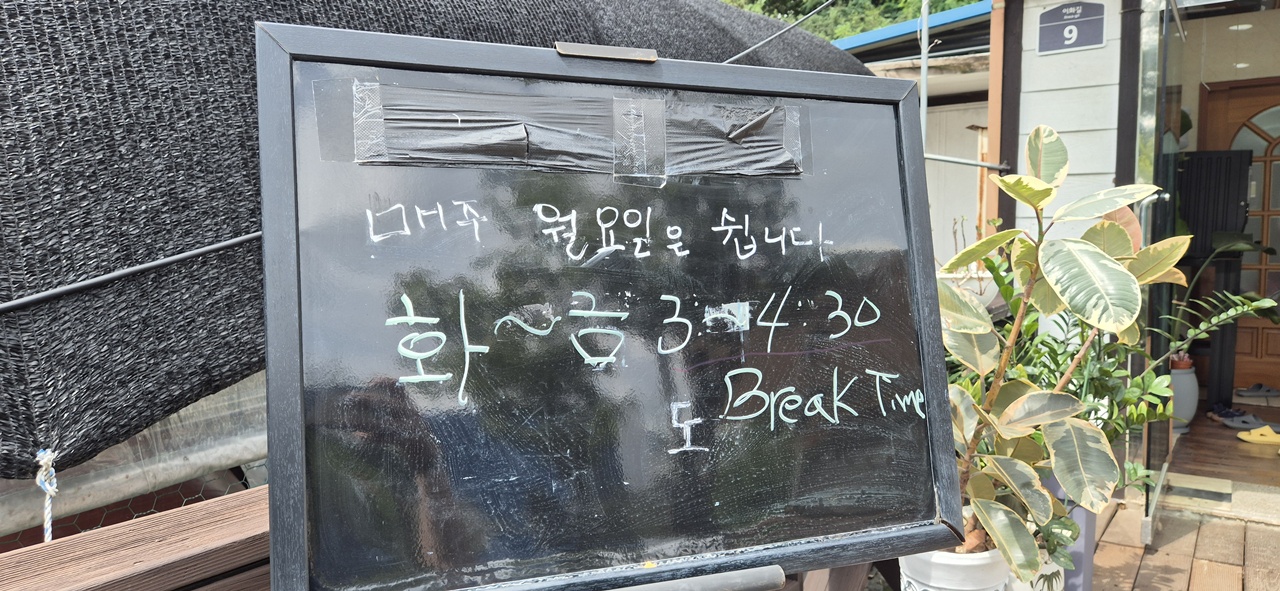 매주 월요일은 쉽니다
화~금 3~4:30
Break Time
도
9